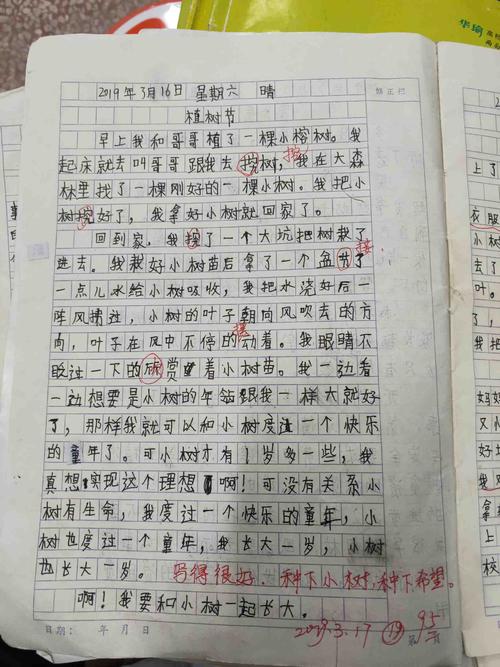 华瑜
2019年3月16日 星期六 晴
修正栏
植树节
早上我和哥哥植了一棵小榕树。我
起床就去叫哥哥跟我去挖树,我在大森
挖
林里找了一棵刚好的一棵小树。我把小
树挖好了,我拿好小树就回家了。
回到家,我挖了一个大坑把树栽了
进去。我栽好小树苗后拿了一个盆
接
一点儿水给小树吸收,我把水浇好后一
阵风捕过,小树的叶子朝向风吹去的方
向,叶子在风中不停的动着。我眼睛不
摆
眨过一下的欣赏着小树苗。我一边看
一边想要是小树的年龄跟我一样大就好
了,那样我就可以和小树度过一个快乐
的童年了。可小树才有1岁多一些,我
真想实现这个理想啊!可没有关系小
树有生命,我度过一个快乐的童年,小
树也度过一个童年,我长大一岁,小树
也长大一岁。
写得很好,种下小树,种下希望。
啊!我要和小树一起长大。
2019.3.17
19
95
日期: 年 月 日
第 页
衣服
妈妈
又小
拿